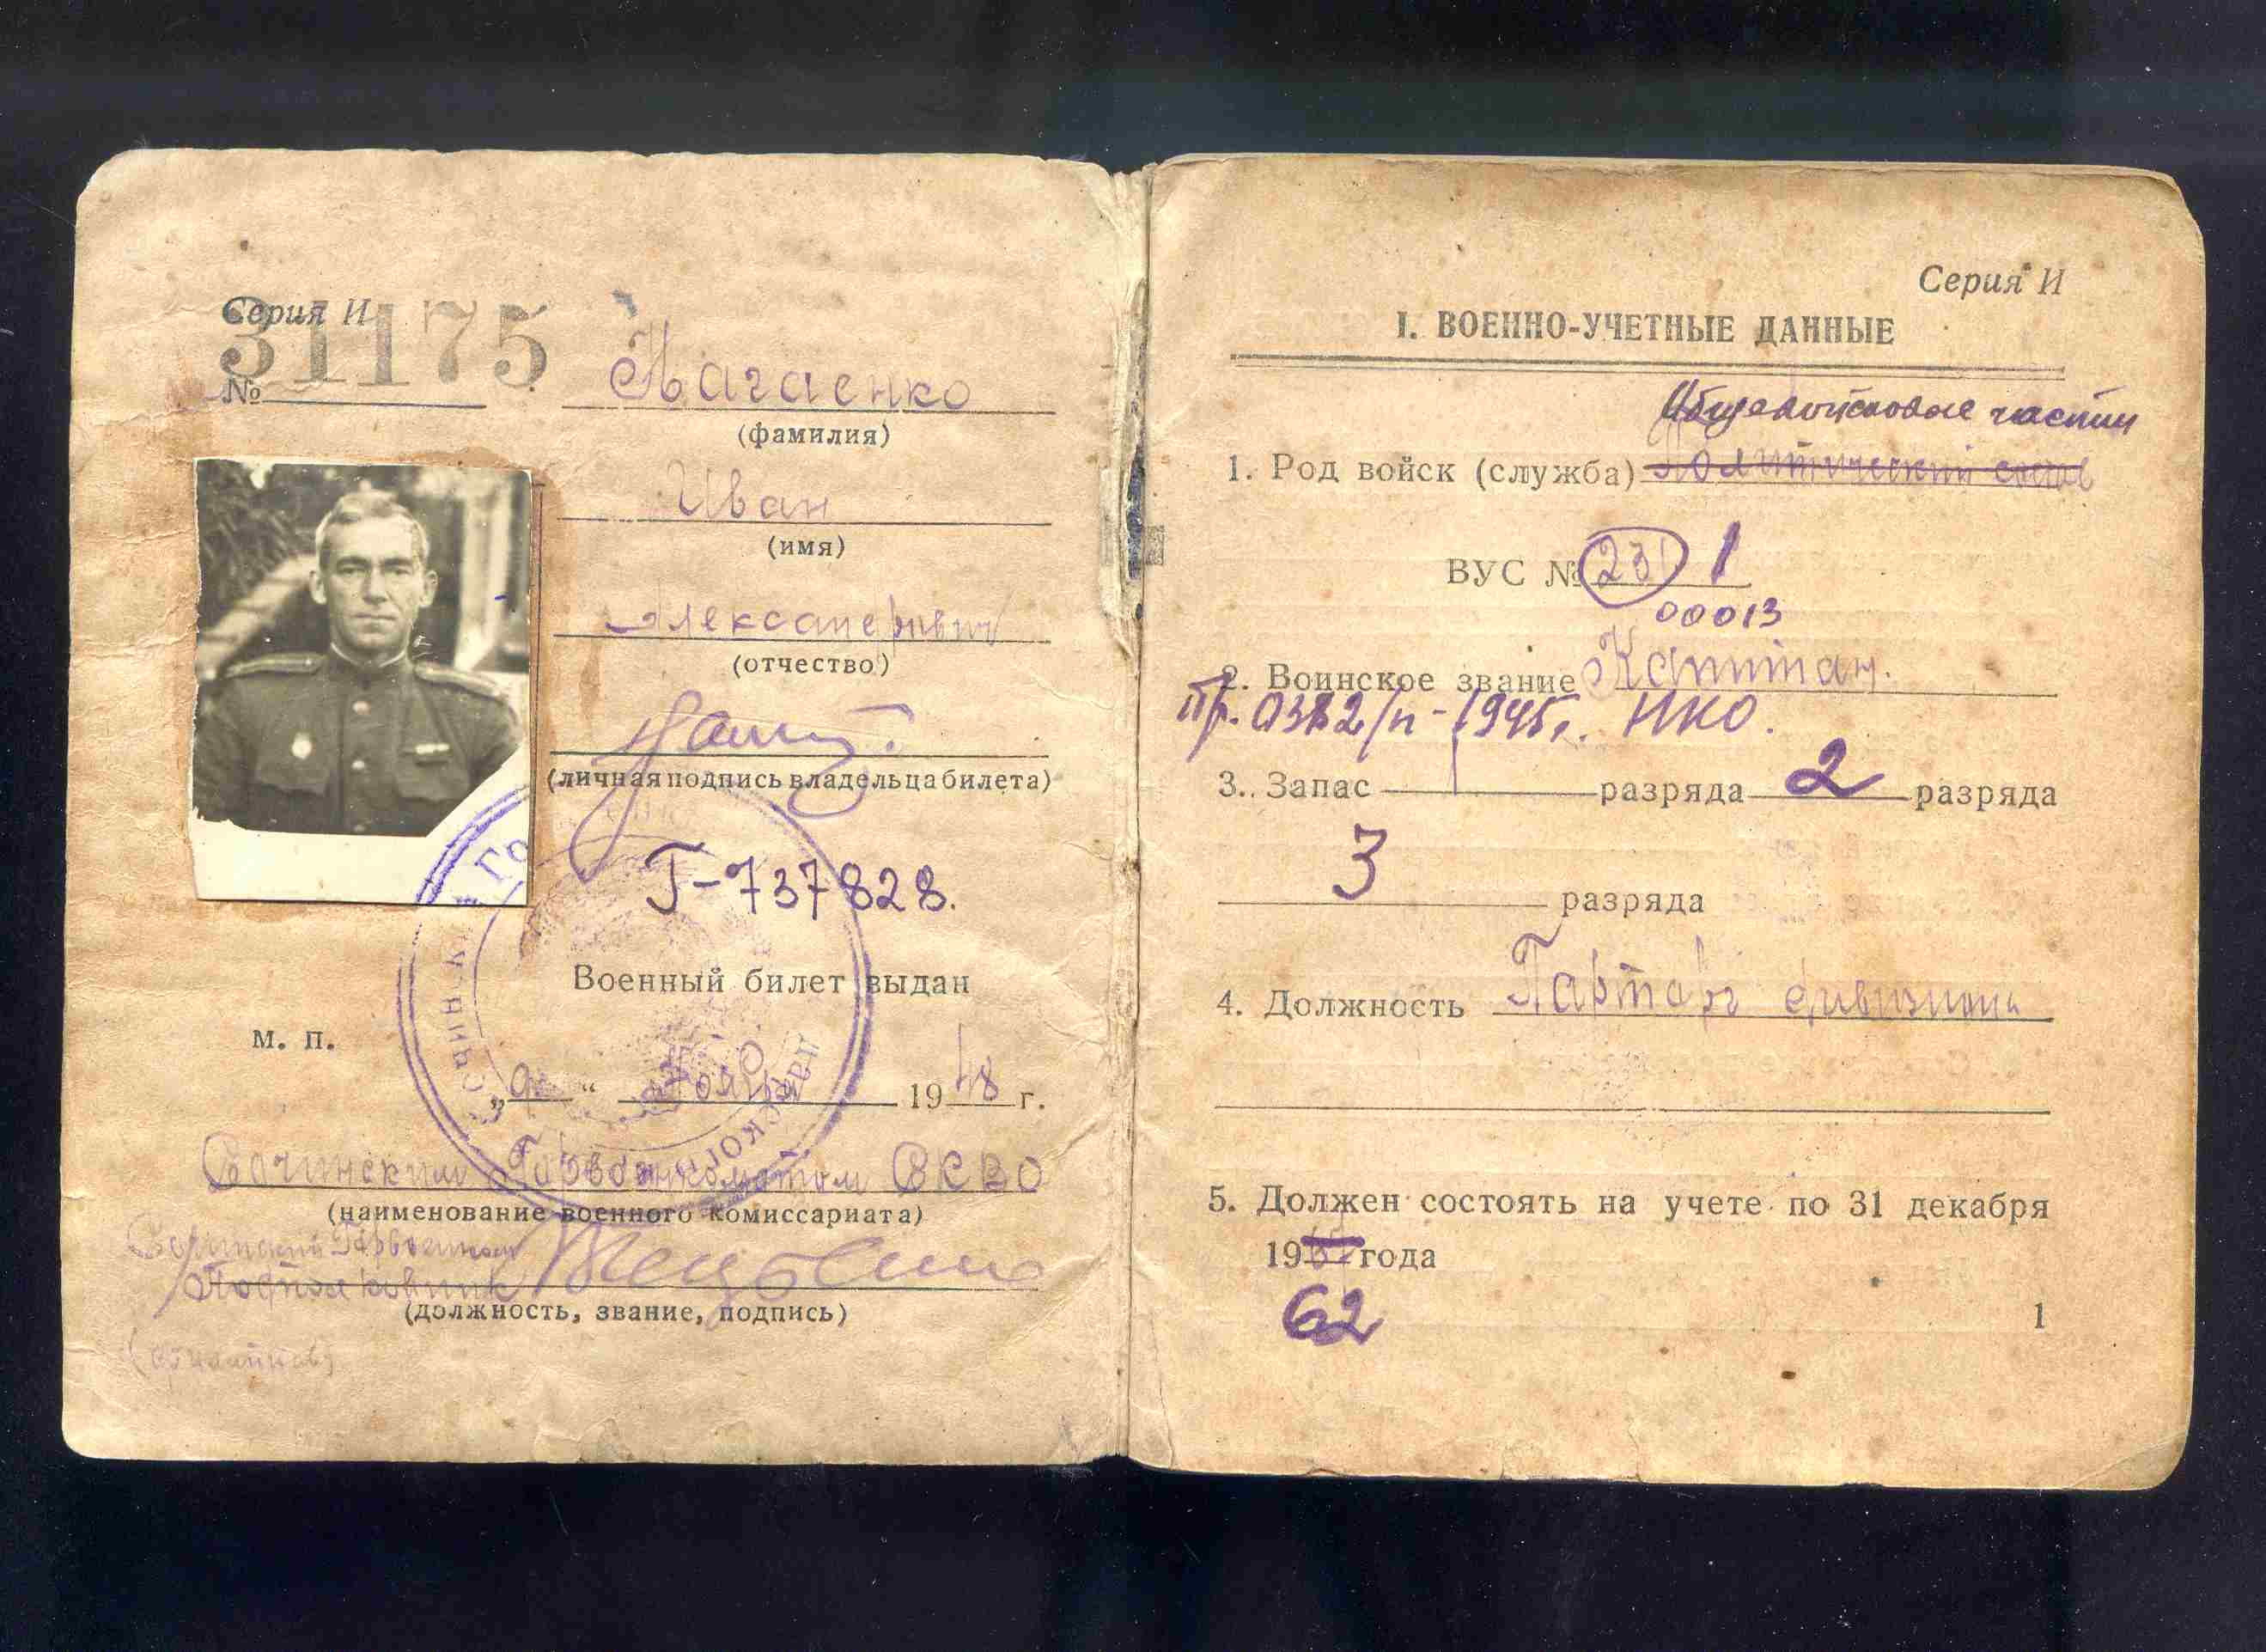 Серия И
31175
№
Нагаенко
(фамилия)
Иван
(имя)
Александрович
(отчество)
(личная подпись владельца билета)
Г-737828.
Военный билет выдан
м. п.
„9“ ноября 1948 г.
Сочинским Горвоенкоматом СКВО
(наименование военного комиссариата)
Сочинский Горвоенком
Подполковник
(должность, звание, подпись)
Серия И
I. ВОЕННО-УЧЕТНЫЕ ДАННЫЕ
Общевойсковые части
1. Род войск (служба) Политический состав
ВУС № 231 1
00013
2. Воинское звание Капитан.
Пр. 0382/п - 1945г. НКО.
3. Запас разряда 2 разряда
3 разряда
4. Должность Парторг дивизиона
5. Должен состоять на учете по 31 декабря
19 года
62
1